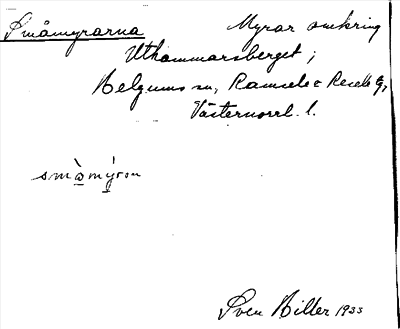 Småmyrarna Myrar omkring
Uthammarsberget;
Helgums sn, Ramsele o Resele tg,
Västernorrl. l.
småmýron
Sven Hiller 1933